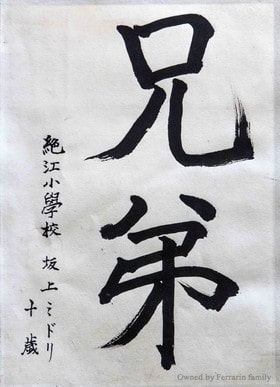 兄弟
絶江小學校 坂上ミドリ
十歳
Owned by Ferrarin family